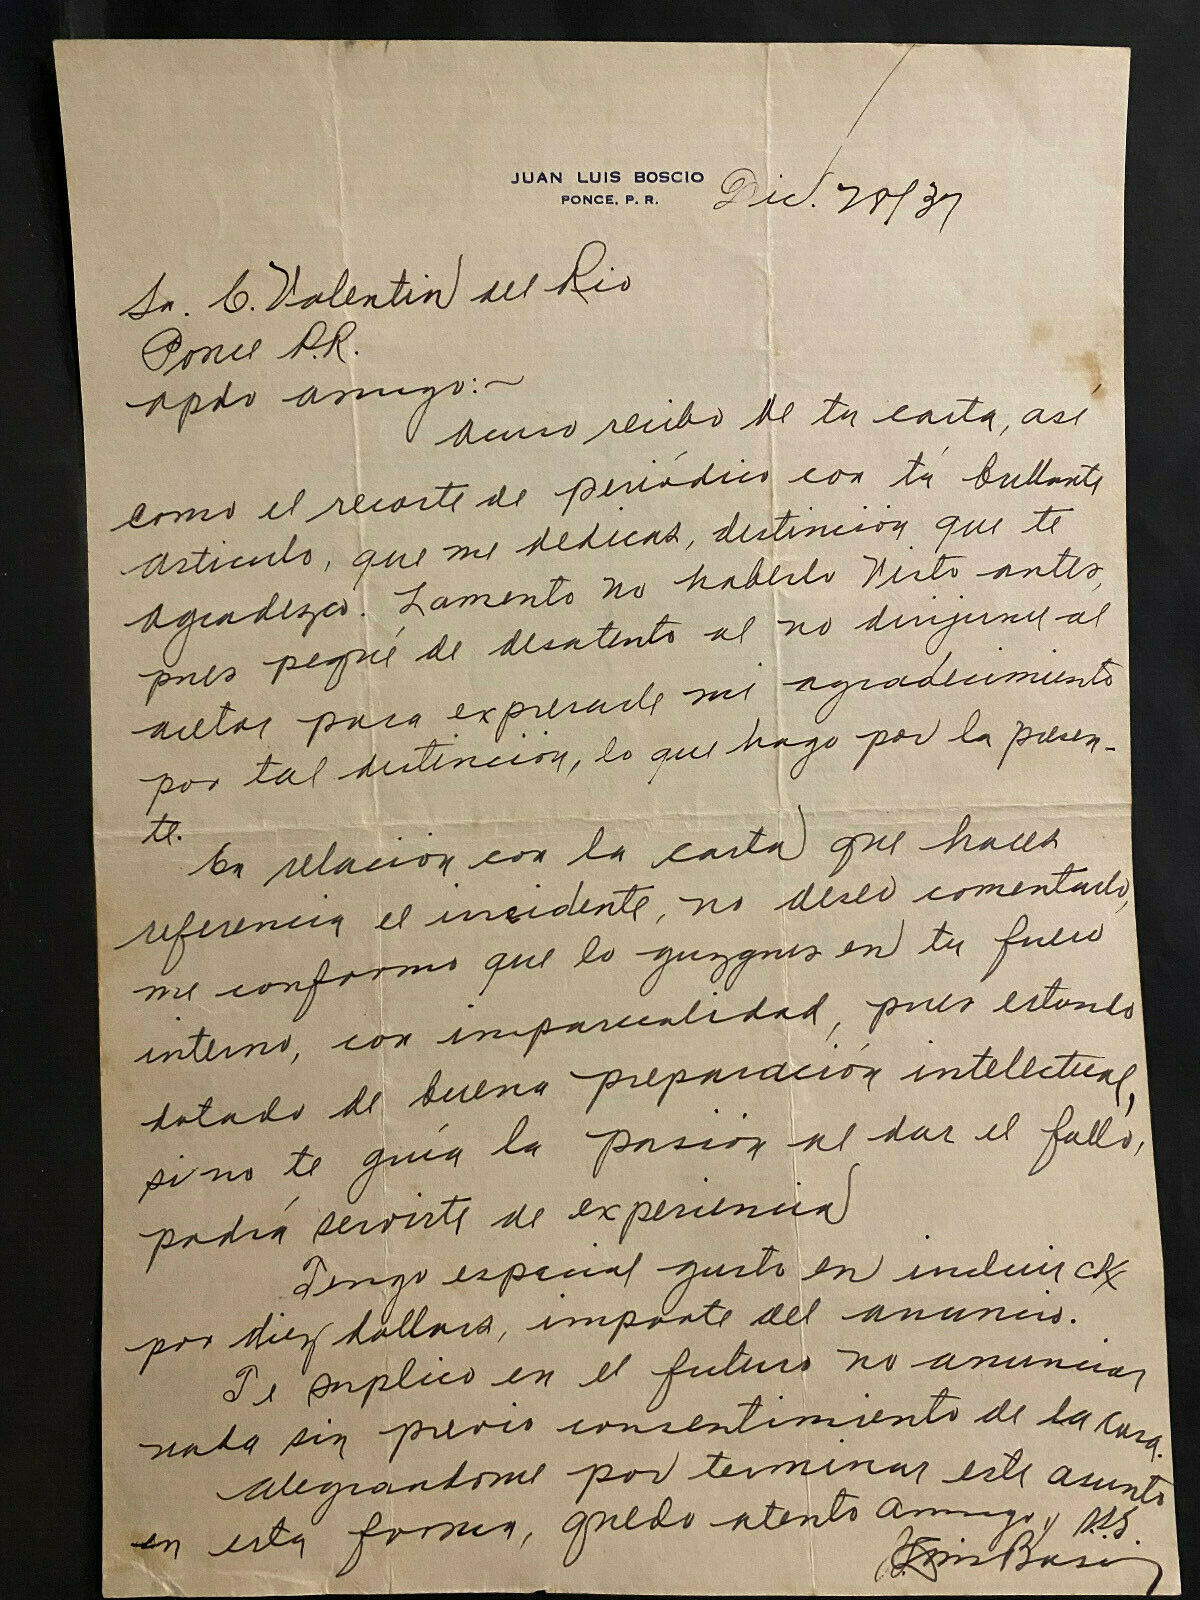 JUAN LUIS BOSCIO
PONCE, P. R.
Dic. 28/37
Sr. C. Valentin del Rio
Ponce P.R.
apdo amigo:~
Acuso recibo de tu carta, asi
como el recorte de periódico con tú brillante
articulo, que me dedicas, distinción que te
agradezco. Lamento no haberlo visto antes,
pues pequé de desatento al no dirijirme al
actor para expresarle mi agradecimiento
por tal distinción, lo que hago por la presen-
te.
En relación con la carta que haces
referencia el incidente, no deseo comentarlo,
me conformo que lo guzgues en tu fuero
interno, con imparcialidad, pues estando
dotado de buena preparación intelectual,
si no te guía la pasión al dar el fallo,
podría servirte de experiencia
Tengo especial gusto en incluir ck
por diez dollars, importe del anuncio.
Te suplico en el futuro no anunciar
nada sin previo consentimiento de la casa.
Alegrandome por terminar este asunto
en esta forma, quedo atento amigo y S.S.